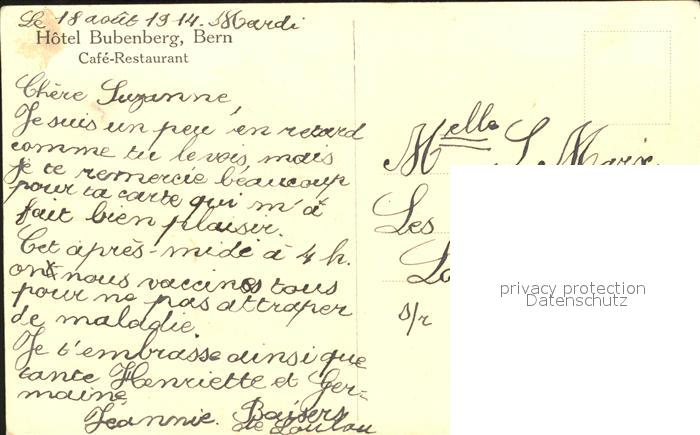 Le 18 août 1914. Mardi
Hôtel Bubenberg, Bern
Café-Restaurant
Chère Suzanne,
Je suis un peu en retard
comme tu le vois, mais
je te remercie beaucoup
pour ta carte qui m'a
fait bien plaisir.
Cet après-midi à 4 h.
on nous vaccine tous
pour ne pas attraper
de maladie.
Je t'embrasse ainsi que
tante Henriette et Ger-
maine
Jeannie. Baisers
de Loulou
Melle S. Marx
Les
s/r
privacy protection
Datenschutz